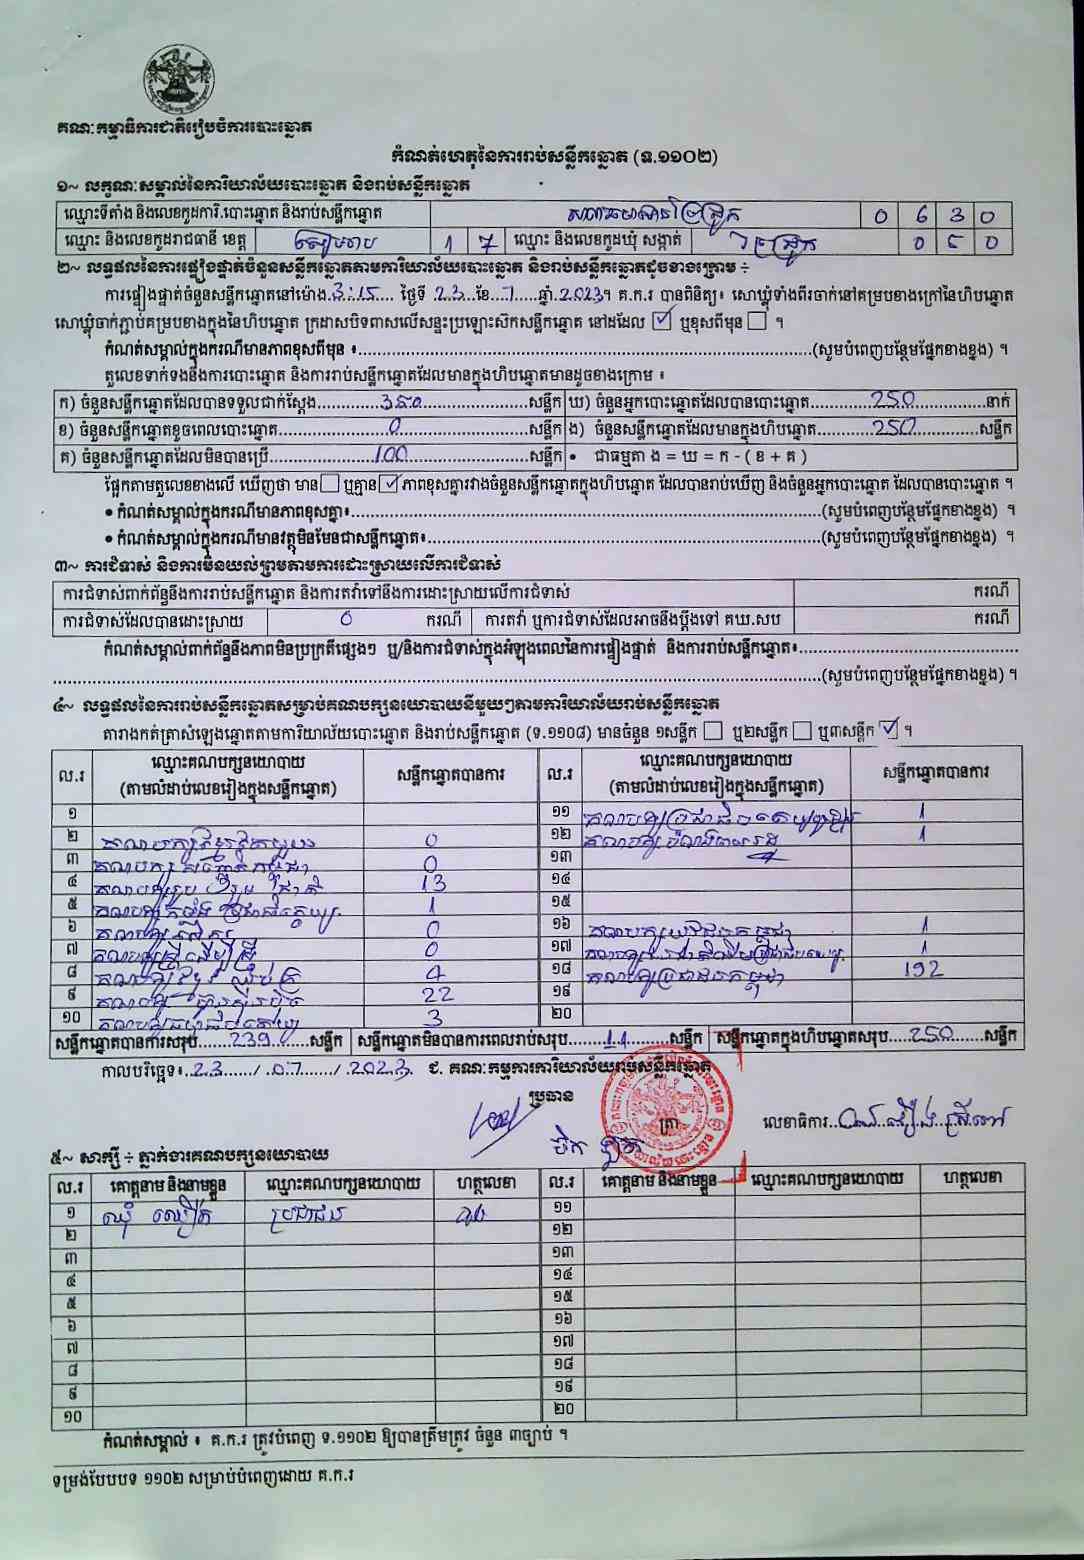 គណៈកម្មាធិការជាតិរៀបចំការបោះឆ្នោត
កំណត់ហេតុនៃការរាប់សន្លឹកឆ្នោត (ទ.១១០២)
១~ លក្ខណៈសម្គាល់នៃការិយាល័យបោះឆ្នោត និងរាប់សន្លឹកឆ្នោត
ឈ្មោះទីតាំង និងលេខកូដការិ.បោះឆ្នោត និងរាប់សន្លឹកឆ្នោត 0 6 3 0
ឈ្មោះ និងលេខកូដរាជធានី ខេត្ត សៀមរាប 1 7 ឈ្មោះ និងលេខកូដឃុំ សង្កាត់
២~ លទ្ធផលនៃការផ្ទៀងផ្ទាត់ចំនួនសន្លឹកឆ្នោតតាមការិយាល័យបោះឆ្នោត និងរាប់សន្លឹកឆ្នោតដូចខាងក្រោម ÷
ការផ្ទៀងផ្ទាត់ចំនួនសន្លឹកឆ្នោតនៅម៉ោង.3:15..... ថ្ងៃទី .23...ខែ...7....ឆ្នាំ.2023។ គ.ក.រ បានពិនិត្យ៖ សោឃ្លុំទាំងពីរចាក់នៅគម្របខាងក្រៅនៃហិបឆ្នោត
សោឃ្លុំចាក់ភ្ជាប់គម្របខាងក្នុងនៃហិបឆ្នោត ក្រដាសបិទពាសលើសន្ទះប្រឡោះសិកសន្លឹកឆ្នោត នៅដដែល ☑ ឬខុសពីមុន ☐ ។
កំណត់សម្គាល់ក្នុងករណីមានភាពខុសពីមុន ៖..........(សូមបំពេញបន្ថែមផ្នែកខាងខ្នង) ។
តួលេខទាក់ទងនឹងការបោះឆ្នោត និងការរាប់សន្លឹកឆ្នោតដែលមានក្នុងហិបឆ្នោតមានដូចខាងក្រោម ៖
ក) ចំនួនសន្លឹកឆ្នោតដែលបានទទួលជាក់ស្តែង.......350.......សន្លឹក ឃ) ចំនួនអ្នកបោះឆ្នោតដែលបានបោះឆ្នោត.......250.......នាក់
ខ) ចំនួនសន្លឹកឆ្នោតខូចពេលបោះឆ្នោត.......0.......សន្លឹក ង) ចំនួនសន្លឹកឆ្នោតដែលមានក្នុងហិបឆ្នោត.......250.......សន្លឹក
គ) ចំនួនសន្លឹកឆ្នោតដែលមិនបានប្រើ.......100.......សន្លឹក • ជាធម្មតា ង = ឃ = ក - ( ខ + គ )
ផ្អែកតាមតួលេខខាងលើ ឃើញថា មាន ☐ ឬគ្មាន ☑ ភាពខុសគ្នារវាងចំនួនសន្លឹកឆ្នោតក្នុងហិបឆ្នោត ដែលបានរាប់ឃើញ និងចំនួនអ្នកបោះឆ្នោត ដែលបានបោះឆ្នោត ។
• កំណត់សម្គាល់ក្នុងករណីមានភាពខុសគ្នា៖..........(សូមបំពេញបន្ថែមផ្នែកខាងខ្នង) ។
• កំណត់សម្គាល់ក្នុងករណីមានវត្ថុមិនមែនជាសន្លឹកឆ្នោត៖..........(សូមបំពេញបន្ថែមផ្នែកខាងខ្នង) ។
៣~ ការជំទាស់ និងការមិនយល់ព្រមតាមការដោះស្រាយលើការជំទាស់
ការជំទាស់ពាក់ព័ន្ធនឹងការរាប់សន្លឹកឆ្នោត និងការតវ៉ាទៅនឹងការដោះស្រាយលើការជំទាស់ ករណី
ការជំទាស់ដែលបានដោះស្រាយ 0 ករណី ការតវ៉ា ឬការជំទាស់ដែលអាចនឹងប្តឹងទៅ គឃ.សប ករណី
កំណត់សម្គាល់ពាក់ព័ន្ធនឹងភាពមិនប្រក្រតីផ្សេងៗ ឬ/និងការជំទាស់ក្នុងអំឡុងពេលនៃការផ្ទៀងផ្ទាត់ និងការរាប់សន្លឹកឆ្នោត៖..........
..........(សូមបំពេញបន្ថែមផ្នែកខាងខ្នង) ។
៤~ លទ្ធផលនៃការរាប់សន្លឹកឆ្នោតសម្រាប់គណបក្សនយោបាយនីមួយៗតាមការិយាល័យរាប់សន្លឹកឆ្នោត
តារាងកត់ត្រាសំឡេងឆ្នោតតាមការិយាល័យបោះឆ្នោត និងរាប់សន្លឹកឆ្នោត (ទ.១១០៨) មានចំនួន ១សន្លឹក ☐ ឬ២សន្លឹក ☐ ឬ៣សន្លឹក ☑ ។
ល.រ ឈ្មោះគណបក្សនយោបាយ (តាមលំដាប់លេខរៀងក្នុងសន្លឹកឆ្នោត) សន្លឹកឆ្នោតបានការ ល.រ ឈ្មោះគណបក្សនយោបាយ (តាមលំដាប់លេខរៀងក្នុងសន្លឹកឆ្នោត) សន្លឹកឆ្នោតបានការ
១ ១១ 1
២ 0 ១២ 1
៣ 0 ១៣
៤ 13 ១៤
៥ 1 ១៥
៦ 0 ១៦ 1
៧ គណបក្សស្ត្រីដើម្បីស្ត្រី 0 ១៧ 1
៨ 4 ១៨ គណបក្សប្រជាជនកម្ពុជា 192
៩ គណបក្ស ហ៊្វុនស៊ិនប៉ិច 22 ១៩
១០ 3 ២០
សន្លឹកឆ្នោតបានការសរុប.....239.....សន្លឹក សន្លឹកឆ្នោតមិនបានការពេលរាប់សរុប.....11.....សន្លឹក សន្លឹកឆ្នោតក្នុងហិបឆ្នោតសរុប.....250.....សន្លឹក
កាលបរិច្ឆេទ៖..23...../..07...../..2023. ជ. គណៈកម្មការការិយាល័យរាប់សន្លឹកឆ្នោត
ប្រធាន
ត្រា
លេខាធិការ..
៥~ សាក្សី ÷ ភ្នាក់ងារគណបក្សនយោបាយ
ល.រ គោត្តនាម និងនាមខ្លួន ឈ្មោះគណបក្សនយោបាយ ហត្ថលេខា ល.រ គោត្តនាម និងនាមខ្លួន ឈ្មោះគណបក្សនយោបាយ ហត្ថលេខា
១ ប្រជាជន ១១
២ ១២
៣ ១៣
៤ ១៤
៥ ១៥
៦ ១៦
៧ ១៧
៨ ១៨
៩ ១៩
១០ ២០
កំណត់សម្គាល់ ៖ គ.ក.រ ត្រូវបំពេញ ទ.១១០២ ឱ្យបានត្រឹមត្រូវ ចំនួន ៣ច្បាប់ ។
ទម្រង់បែបបទ ១១០២ សម្រាប់បំពេញដោយ គ.ក.រ